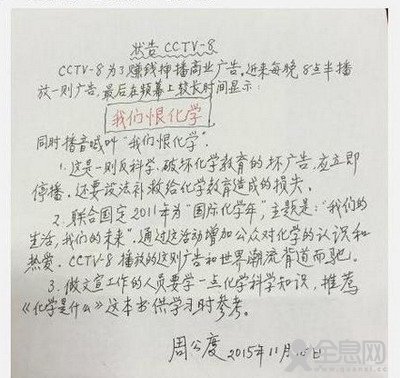 状告CCTV-8
CCTV-8为了赚钱插播商业广告。近来每晚8点半播
放一则广告,最后在频幕上较长时间显示:
我们恨化学
同时播音喊叫“我们恨化学”.
1.这是一则反科学,破坏化学教育的坏广告,应立即
停播,还要设法补救给化学教育造成的损失。
2.联合国定2011年为“国际化学年”,主题是:“我们的
生活,我们的未来”.通过这活动增加公众对化学的认识和
热爱。CCTV-8播放的这则广告和世界潮流背道而驰。
3.做文宣工作的人员要学一点化学科学知识,推荐
《化学是什么》这本书供学习时参考。
周公度 2015年11月 日
全息网